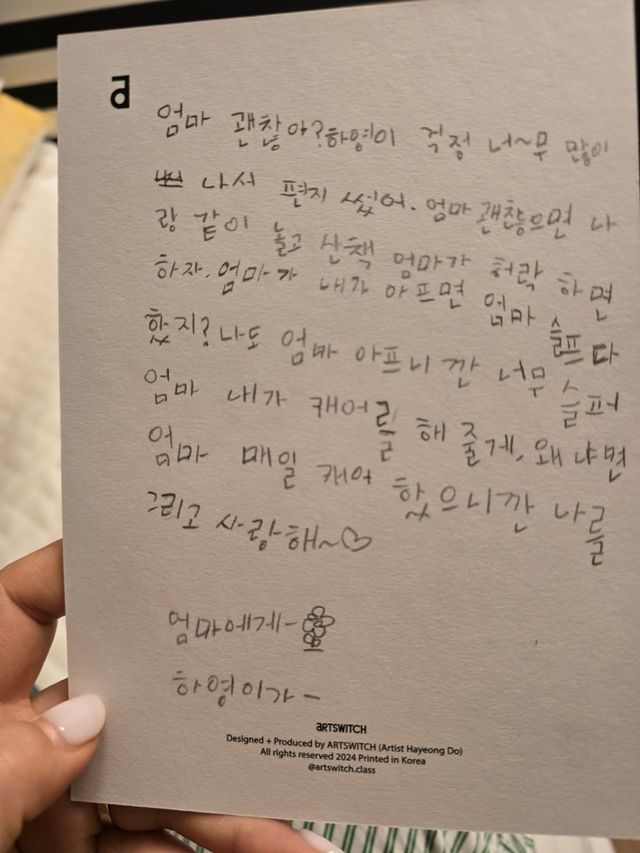 a
엄마 괜찮아? 하영이 걱정 너~무 많이
나서 편지 썼어. 엄마 괜찮으면 나
랑 같이 놀고 산책 엄마가 허락 하면
하자. 엄마가 내가 아프면 엄마 슬프다
했지? 나도 엄마 아프니깐 너무 슬퍼
엄마 내가 캐어를 해 줄게, 왜냐면
엄마 매일 캐어 했으니깐 나를
그리고 사랑해~♡
엄마에게-
하영이가-
ARTSWITCH
Designed + Produced by ARTSWITCH (Artist Hayeong Do)
All rights reserved 2024 Printed in Korea
@artswitch.class